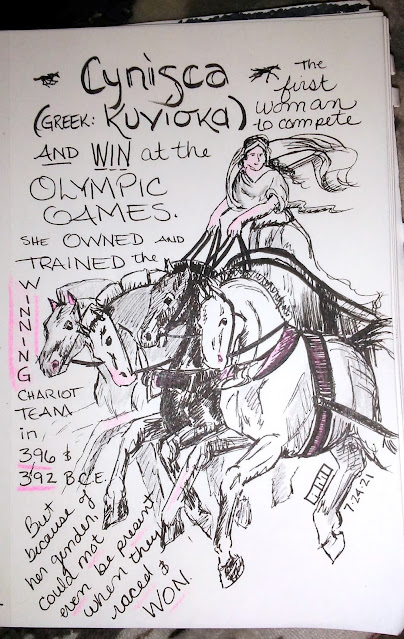 Cynisca
(GREEK: Κυνισκα)
The
first
woman
to compete
AND WIN at the
OLYMPIC
GAMES.
SHE OWNED AND
TRAINED the
WINNING
CHARIOT
TEAM
in
396 &
392 B.C.E.
But
because of
her gender,
could not
even be present
when they
raced &
WON.
7.24.21